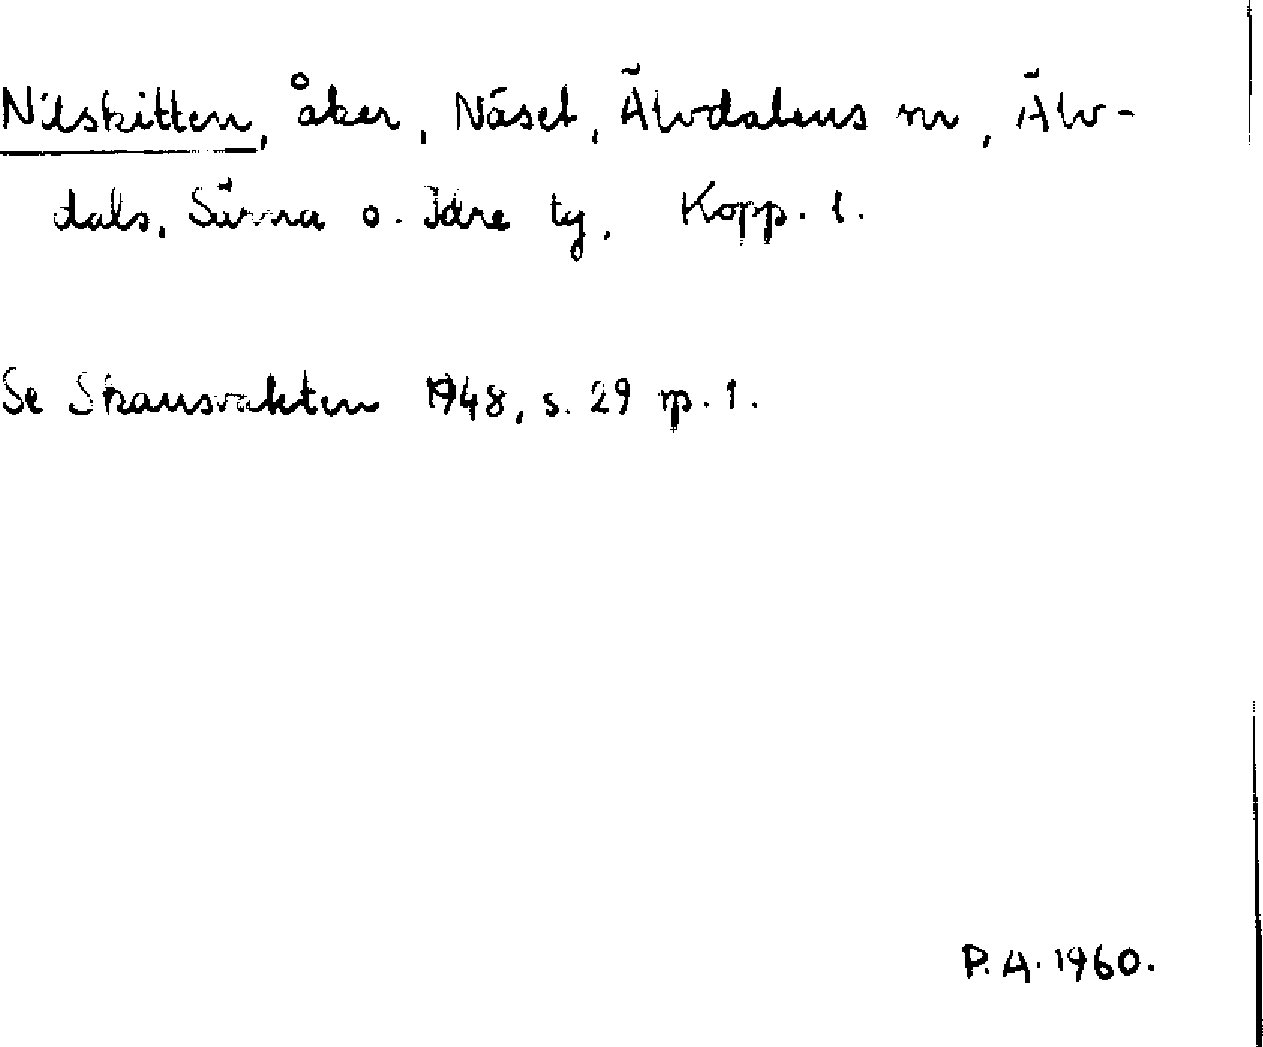 Nilskitten, åker, Näset, Älvdalens sn, Älv-
dals, Särna o. Idre tg, Kopp. l.
Se Skansvakten 1948, s. 29 sp. 1.
P.A. 1960.